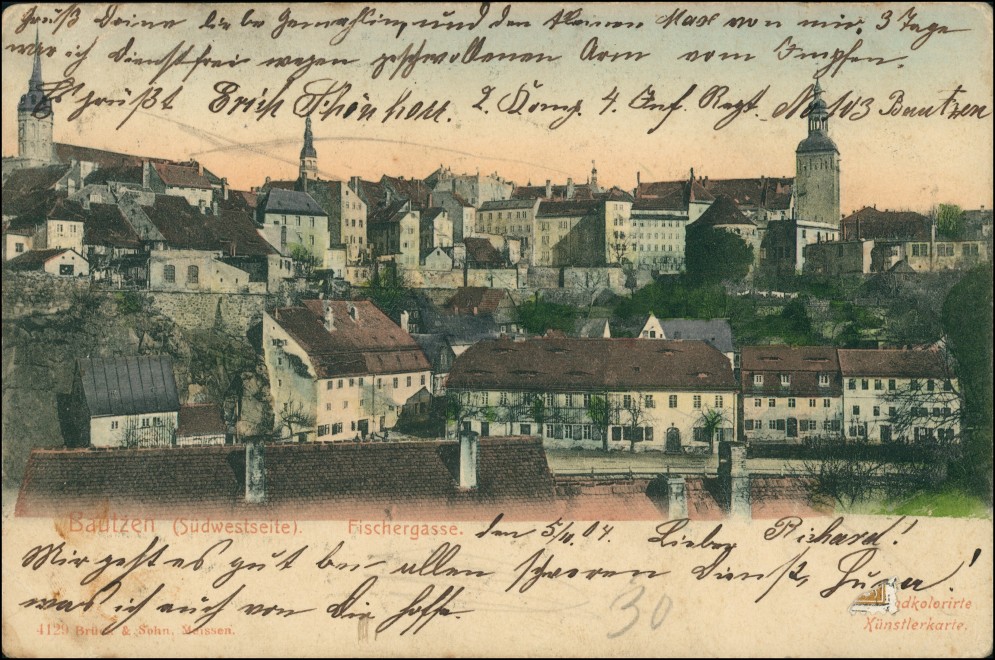 Gruß Deine liebe Gemahlin, und den kleinen Max von mir, 3 Tage
war ich dienstfrei wegen geschwollenen Arm vom Impfen.
Es grüßt Erich Schönherr. 2. Komp. 4. Inf. Regt. No 103 Bautzen
Bautzen (Südwestseite). Fischergasse. den 5/11. 04. Lieber Richard!
Mir geht es gut bei allen schweren Dienst,
was ich auch von Dir hoffe.
dkolorirte
Künstlerkarte.
4129 Brück & Sohn, Meissen.
30